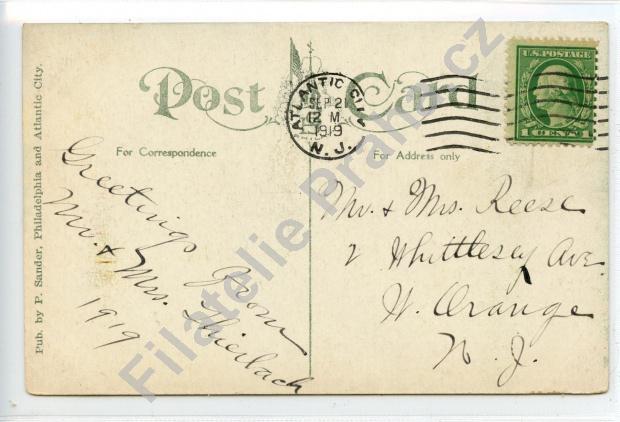 Post Card
ATLANTIC CITY
SEP 21
12 M
1919
N. J.
U.S. POSTAGE
1 CENT 1
For Correspondence
For Address only
Greetings from
Mr. & Mrs. Thierbach
1919
Mr. & Mrs. Reese
2 Whittlesey Ave.
W. Orange
N. J.
Pub. by P. Sander, Philadelphia and Atlantic City.
Filatelie Praha.cz